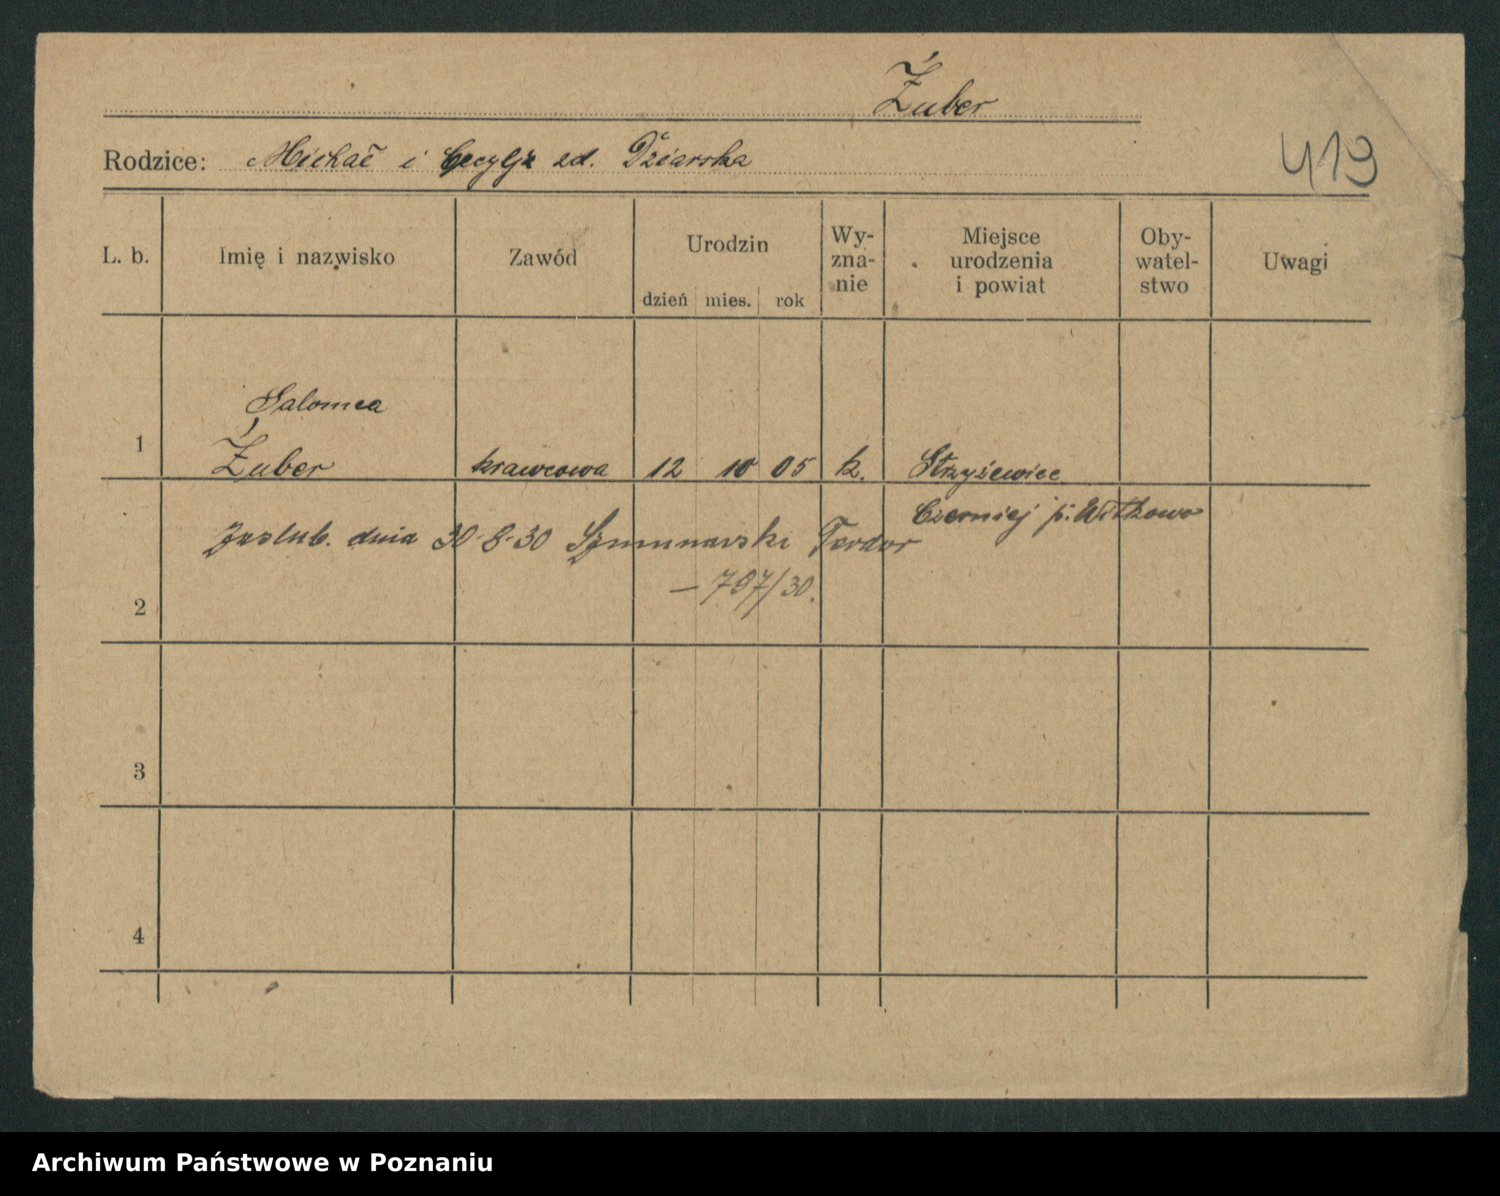 Żuber
Rodzice: Michał i Cecylja zd. Dziarska
419
L. b. Imię i nazwisko Zawód Urodzin dzień mies. rok Wy-zna-nie Miejsce urodzenia i powiat Oby-watel-stwo Uwagi
Salomea
1 Żuber krawcowa 12 10 05 k. Strzyżewiec
Czerniej p. Witkowo
Zaślub. dnia 30-8-30 Szymunarski Teodor
— 797/30.
2
3
4
Archiwum Państwowe w Poznaniu